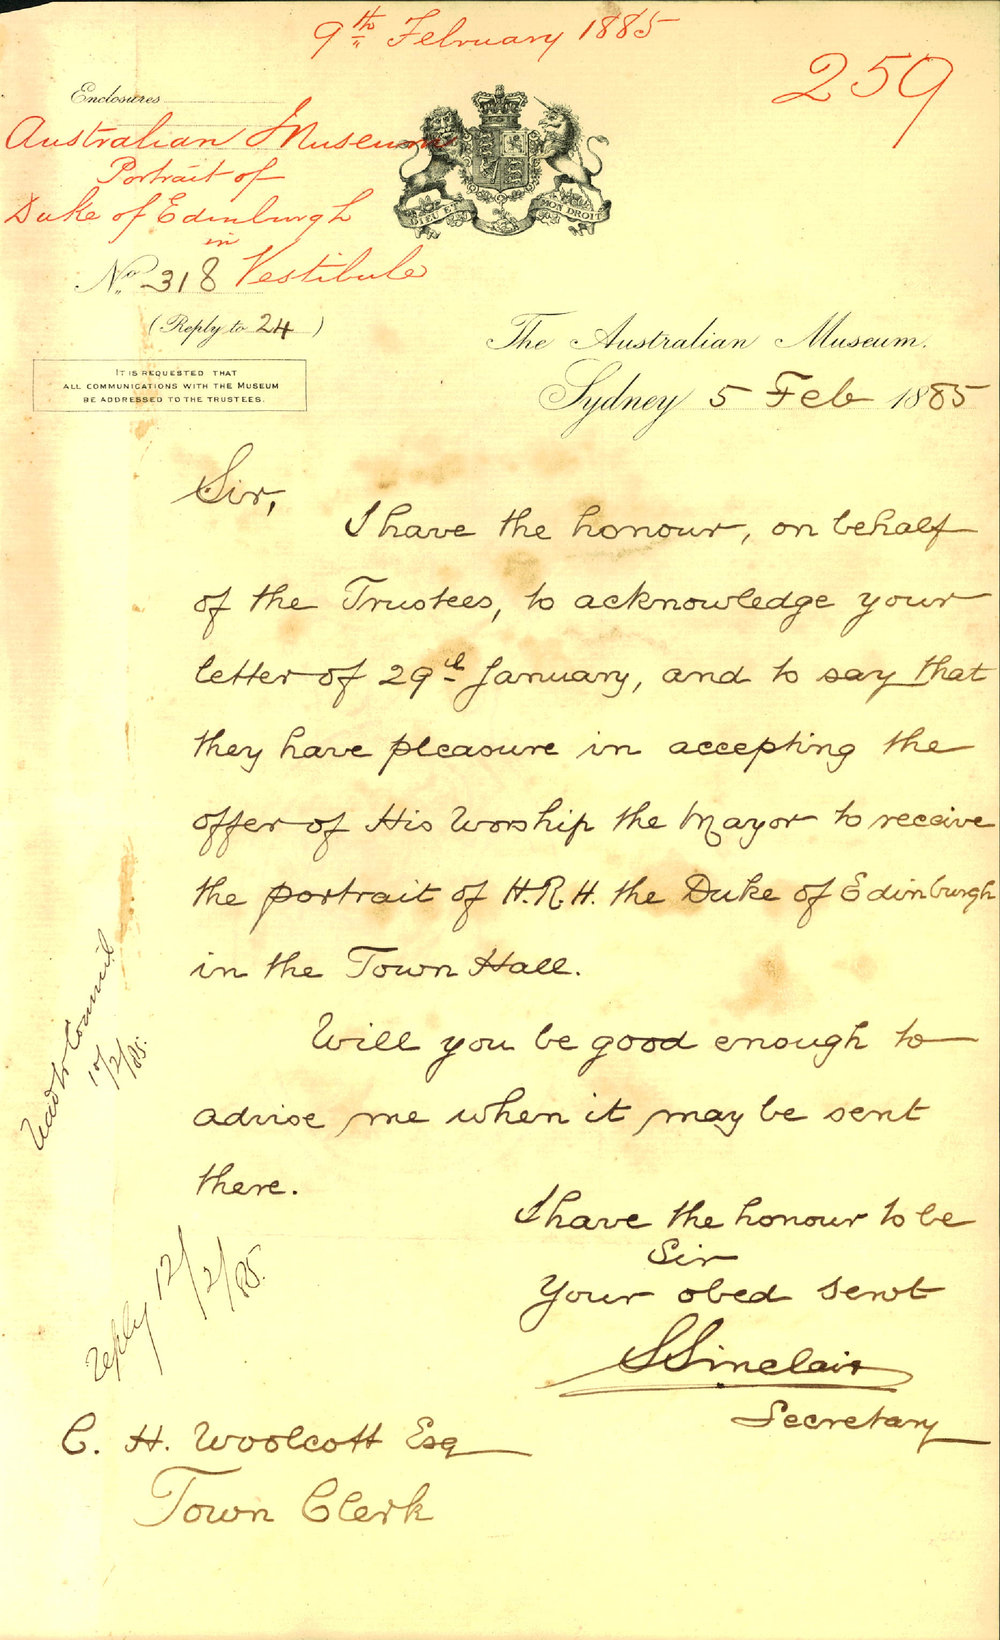 9th February 1885
259
Enclosures
Australian Museum
Portrait of
Duke of Edinburgh
in
Vestibule
No. 318
(Reply to 24)
IT IS REQUESTED THAT
ALL COMMUNICATIONS WITH THE MUSEUM
BE ADDRESSED TO THE TRUSTEES.
DIEU ET MON DROIT
The Australian Museum.
Sydney 5 Feb 1885
Sir,
I have the honour, on behalf
of the Trustees, to acknowledge your
letter of 29th January, and to say that
they have pleasure in accepting the
offer of His Worship the Mayor to receive
the portrait of H.R.H. the Duke of Edinburgh
in the Town Hall.
Will you be good enough to
advise me when it may be sent
there.
I have the honour to be
Sir
Your obed servt
S Sinclair
Secretary
C. H. Woolcott Esq
Town Clerk
Council
10/2/85.
Reply 12/2/85.